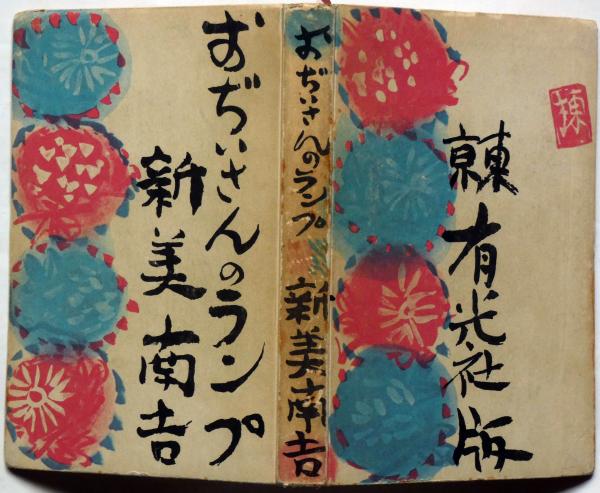 おぢいさんのランプ
新美南吉
おぢいさんのランプ 新美南吉
東京 有光社版
棟